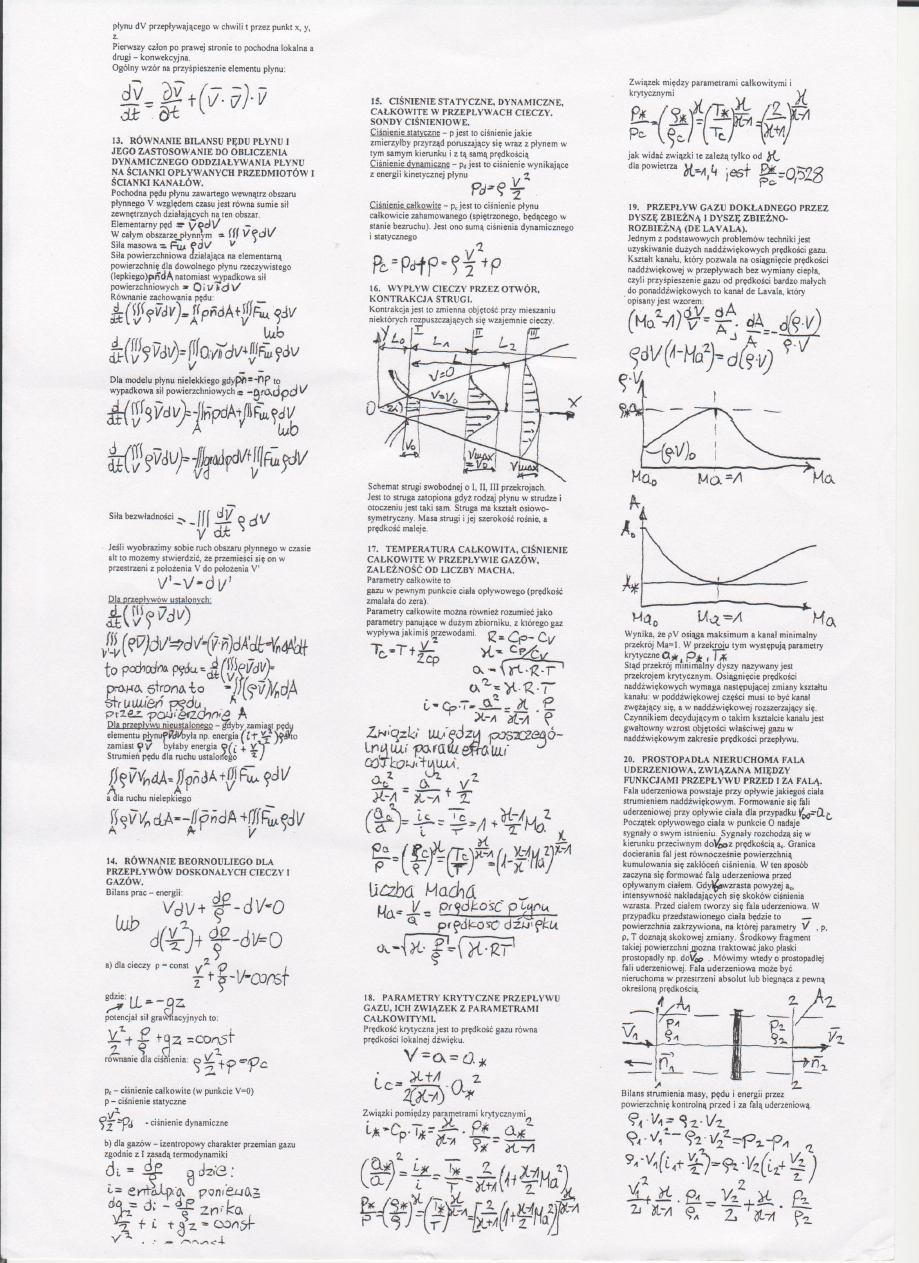 płynu dV przepływającego w chwili t przez punkt x, y,
z.
Pierwszy człon po prawej stronie to pochodna lokalna a
drugi – konwekcyjna.
Ogólny wzór na przyśpieszenie elementu płynu:
dV/dt = ∂V/∂t + (V·∇)·V
13. RÓWNANIE BILANSU PĘDU PŁYNU I
JEGO ZASTOSOWANIE DO OBLICZENIA
DYNAMICZNEGO ODDZIAŁYWANIA PŁYNU
NA ŚCIANKI OPŁYWANYCH PRZEDMIOTÓW I
ŚCIANKI KANAŁÓW.
Pochodna pędu płynu zawartego wewnątrz obszaru
płynnego V względem czasu jest równa sumie sił
zewnętrznych działających na ten obszar.
Elementarny pęd = VρdV
W całym obszarze płynnym = ∭ VρdV
Siła masowa = Fm ρdV
Siła powierzchniowa działająca na elementarną
powierzchnię dla dowolnego płynu rzeczywistego
(lepkiego) pndA natomiast wypadkowa sił
powierzchniowych =
Równanie zachowania pędu:
d/dt(∭ρVdV) = ∬pndA + ∭Fm ρdV
lub
Dla modelu płynu nielekkiego gdy pn = -np to
wypadkowa sił powierzchniowych = -gradpdV
d/dt(∭ρVdV) = -∬npdA + ∭Fm ρdV
lub
d/dt(∭ρVdV) = -∭gradpdV + ∭Fm ρdV
Siła bezwładności = -∭ dV/dt ρdV
Jeśli wyobrazimy sobie ruch obszaru płynnego w czasie
alt to możemy stwierdzić, że przemieści się on w
przestrzeni z położenia V do położenia V'
V'-V=dV'
Dla przepływów ustalonych:
d/dt(∭ρVdV)
to pochodna pędu = d/dt(∭ρVdV) =
prawa strona to = ∬(ρV)VndA
strumień pędu
przez powierzchnię A
Dla przepływu nieustalonego – gdyby zamiast pędu
zamiast ρV byłaby energia ρ(i + V²/2)
Strumień pędu dla ruchu ustalonego
∬ρVVndA = ∬pndA + ∭Fm ρdV
a dla ruchu nielepkiego
∬ρVVndA = -∬pndA + ∭Fm ρdV
14. RÓWNANIE BEORNOULIEGO DLA
PRZEPŁYWÓW DOSKONAŁYCH CIECZY I
GAZÓW.
Bilans prac – energii:
VdV + dp/ρ - dV=0
lub d(V²/2) + dp/ρ - dV=0
a) dla cieczy ρ – const V²/2 + p/ρ - V=const
gdzie: U=-gz
potencjał sił grawitacyjnych to:
V²/2 + p/ρ + gz = const
równanie dla ciśnienia: ρ V²/2 + p = pc
pc – ciśnienie całkowite (w punkcie V=0)
p – ciśnienie statyczne
ρV²/2 = pd - ciśnienie dynamiczne
b) dla gazów – izentropowy charakter przemian gazu
zgodnie z I zasadą termodynamiki
di = dp/ρ gdzie:
i = entalpia ponieważ
dq = di - dp/ρ znika
V²/2 + i + gz = const
15. CIŚNIENIE STATYCZNE, DYNAMICZNE,
CAŁKOWITE W PRZEPŁYWACH CIECZY.
SONDY CIŚNIENIOWE.
Ciśnienie statyczne – p jest to ciśnienie jakie
zmierzyłby przyrząd poruszający się wraz z płynem w
tym samym kierunku i z tą samą prędkością
Ciśnienie dynamiczne – pd jest to ciśnienie wynikające
z energii kinetycznej płynu
pd = ρ V²/2
Ciśnienie całkowite – pc jest to ciśnienie płynu
całkowicie zahamowanego (spiętrzonego, będącego w
stanie bezruchu). Jest ono sumą ciśnienia dynamicznego
i statycznego
pc = pd+p = ρ V²/2 + p
16. WYPŁYW CIECZY PRZEZ OTWÓR,
KONTRAKCJA STRUGI.
Kontrakcja jest to zmienna objętość przy mieszaniu
niektórych rozpuszczających się wzajemnie cieczy.
Y I II III
L0 L1 L2
L
V=0
V=V0
0 X
V0 Vmax=V0 Vmax
Schemat strugi swobodnej o I, II, III przekrojach.
Jest to struga zatopiona gdyż rodzaj płynu w strudze i
otoczeniu jest taki sam. Struga ma kształt osiowo-
symetryczny. Masa strugi i jej szerokość rośnie, a
prędkość maleje.
17. TEMPERATURA CAŁKOWITA, CIŚNIENIE
CAŁKOWITE W PRZEPŁYWIE GAZÓW,
ZALEŻNOŚĆ OD LICZBY MACHA.
Parametry całkowite to
gazu w pewnym punkcie ciała opływowego (prędkość
zmalała do zera).
Parametry całkowite można również rozumieć jako
parametry panujące w dużym zbiorniku, z którego gaz
wypływa jakimiś przewodami. R = Cp - Cv
Tc = T + V²/2cp ϰ = Cp/Cv
a = √ϰ·R·T
a² = ϰ·R·T
i = Cp·T = a²/ϰ-1 = ϰ/ϰ-1 · p/ρ
Związki między poszczegó-
lnymi parametrami
całkowitymi.
ac²/ϰ-1 = a²/ϰ-1 + V²/2
(ac/a)² = ic/i = Tc/T = 1 + ϰ-1/2 Ma²
liczba Macha
Ma = V/a = prędkość płynu / prędkość dźwięku
a = √ϰ·p/ρ = √ϰ·RT
18. PARAMETRY KRYTYCZNE PRZEPŁYWU
GAZU, ICH ZWIĄZEK Z PARAMETRAMI
CAŁKOWITYMI.
Prędkość krytyczna jest to prędkość gazu równa
prędkości lokalnej dźwięku.
V = a = a*
ic = ϰ+1/2(ϰ-1) · a*²
Związki pomiędzy parametrami krytycznymi
i* = Cp·T* = ϰ/ϰ-1 · p*/ρ* = a*²/ϰ-1
(a*/a)² = i*/i = T*/T = 2/ϰ+1 (1+ϰ-1/2 Ma²)
p*/p = (ρ*/ρ)^ϰ = (T*/T)^ϰ/ϰ-1 = [2/ϰ+1 (1+ϰ-1/2 Ma²)]^ϰ/ϰ-1
Związek między parametrami całkowitymi i
krytycznymi
p*/pc = (ρ*/ρc)^ϰ = (T*/Tc)^ϰ/ϰ-1 = (2/ϰ+1)^ϰ/ϰ-1
jak widać związki te zależą tylko od ϰ
dla powietrza ϰ=1,4 jest p*/pc = 0,528
19. PRZEPŁYW GAZU DOKŁADNEGO PRZEZ
DYSZĘ ZBIEŻNĄ I DYSZĘ ZBIEŻNO-
ROZBIEŻNĄ (DE LAVALA).
Jednym z podstawowych problemów techniki jest
uzyskiwanie dużych naddźwiękowych prędkości gazu.
Kształt kanału, który pozwala na osiągnięcie prędkości
naddźwiękowej w przepływach bez wymiany ciepła,
czyli przyśpieszenie gazu od prędkości bardzo małych
do ponaddźwiękowych to kanał de Lavala, który
opisany jest wzorem:
(Ma²-1) dV/V = dA/A ; dA/A = - d(ρ·V)/ρ·V
ρdV(1-Ma²) = d(ρ·V)
ρ·V
ρ*a*
(ρV)0
Ma0 Ma=1 Ma
A
A0
A*
Ma0 Ma=1 Ma
Wynika, że ρV osiąga maksimum a kanał minimalny
przekrój Ma=1. W przekroju tym występują parametry
krytyczne a*, p*, T*
Stąd przekrój minimalny dyszy nazywany jest
przekrojem krytycznym. Osiągnięcie prędkości
naddźwiękowych wymaga następującej zmiany kształtu
kanału: w poddźwiękowej części musi to być kanał
zwężający się, a w naddźwiękowej rozszerzający się.
Czynnikiem decydującym o takim kształcie kanału jest
gwałtowny wzrost objętości właściwej gazu w
naddźwiękowym zakresie prędkości przepływu.
20. PROSTOPADŁA NIERUCHOMA FALA
UDERZENIOWA, ZWIĄZANA MIĘDZY
FUNKCJAMI PRZEPŁYWU PRZED I ZA FALĄ.
Fala uderzeniowa powstaje przy opływie jakiegoś ciała
strumieniem naddźwiękowym. Formowanie się fali
uderzeniowej przy opływie ciała dla przypadku V∞=ac
Początek opływowego ciała w punkcie O nadaje
sygnały o swym istnieniu. Sygnały rozchodzą się w
kierunku przeciwnym do V∞ z prędkością ac. Granica
docierania fal jest równocześnie powierzchnią
kumulowania się zakłóceń ciśnienia. W ten sposób
zaczyna się formować fala uderzeniowa przed
opływanym ciałem. Gdy V∞ wzrasta powyżej ac,
intensywność nakładających się skoków ciśnienia
wzrasta. Przed ciałem tworzy się fala uderzeniowa. W
przypadku przedstawionego ciała będzie to
powierzchnia zakrzywiona, na której parametry V, p,
ρ, T doznają skokowej zmiany. Środkowy fragment
takiej powierzchni można traktować jako płaski
prostopadły np. do V∞. Mówimy wtedy o prostopadłej
fali uderzeniowej. Fala uderzeniowa może być
nieruchoma w przestrzeni absolut lub biegnąca z pewną
określoną prędkością.
1 A1 2 A2
V1 p1 ρ1 p2 ρ2 V2
n1 n2
1 2
Bilans strumienia masy, pędu i energii przez
powierzchnię kontrolną przed i za falą uderzeniową.
ρ1·V1 = ρ2·V2
ρ1·V1² - ρ2·V2² = p2-p1
ρ1·V1(i1+V1²/2) = ρ2·V2(i2+V2²/2)
V1²/2 + ϰ/ϰ-1 · p1/ρ1 = V2²/2 + ϰ/ϰ-1 · p2/ρ2